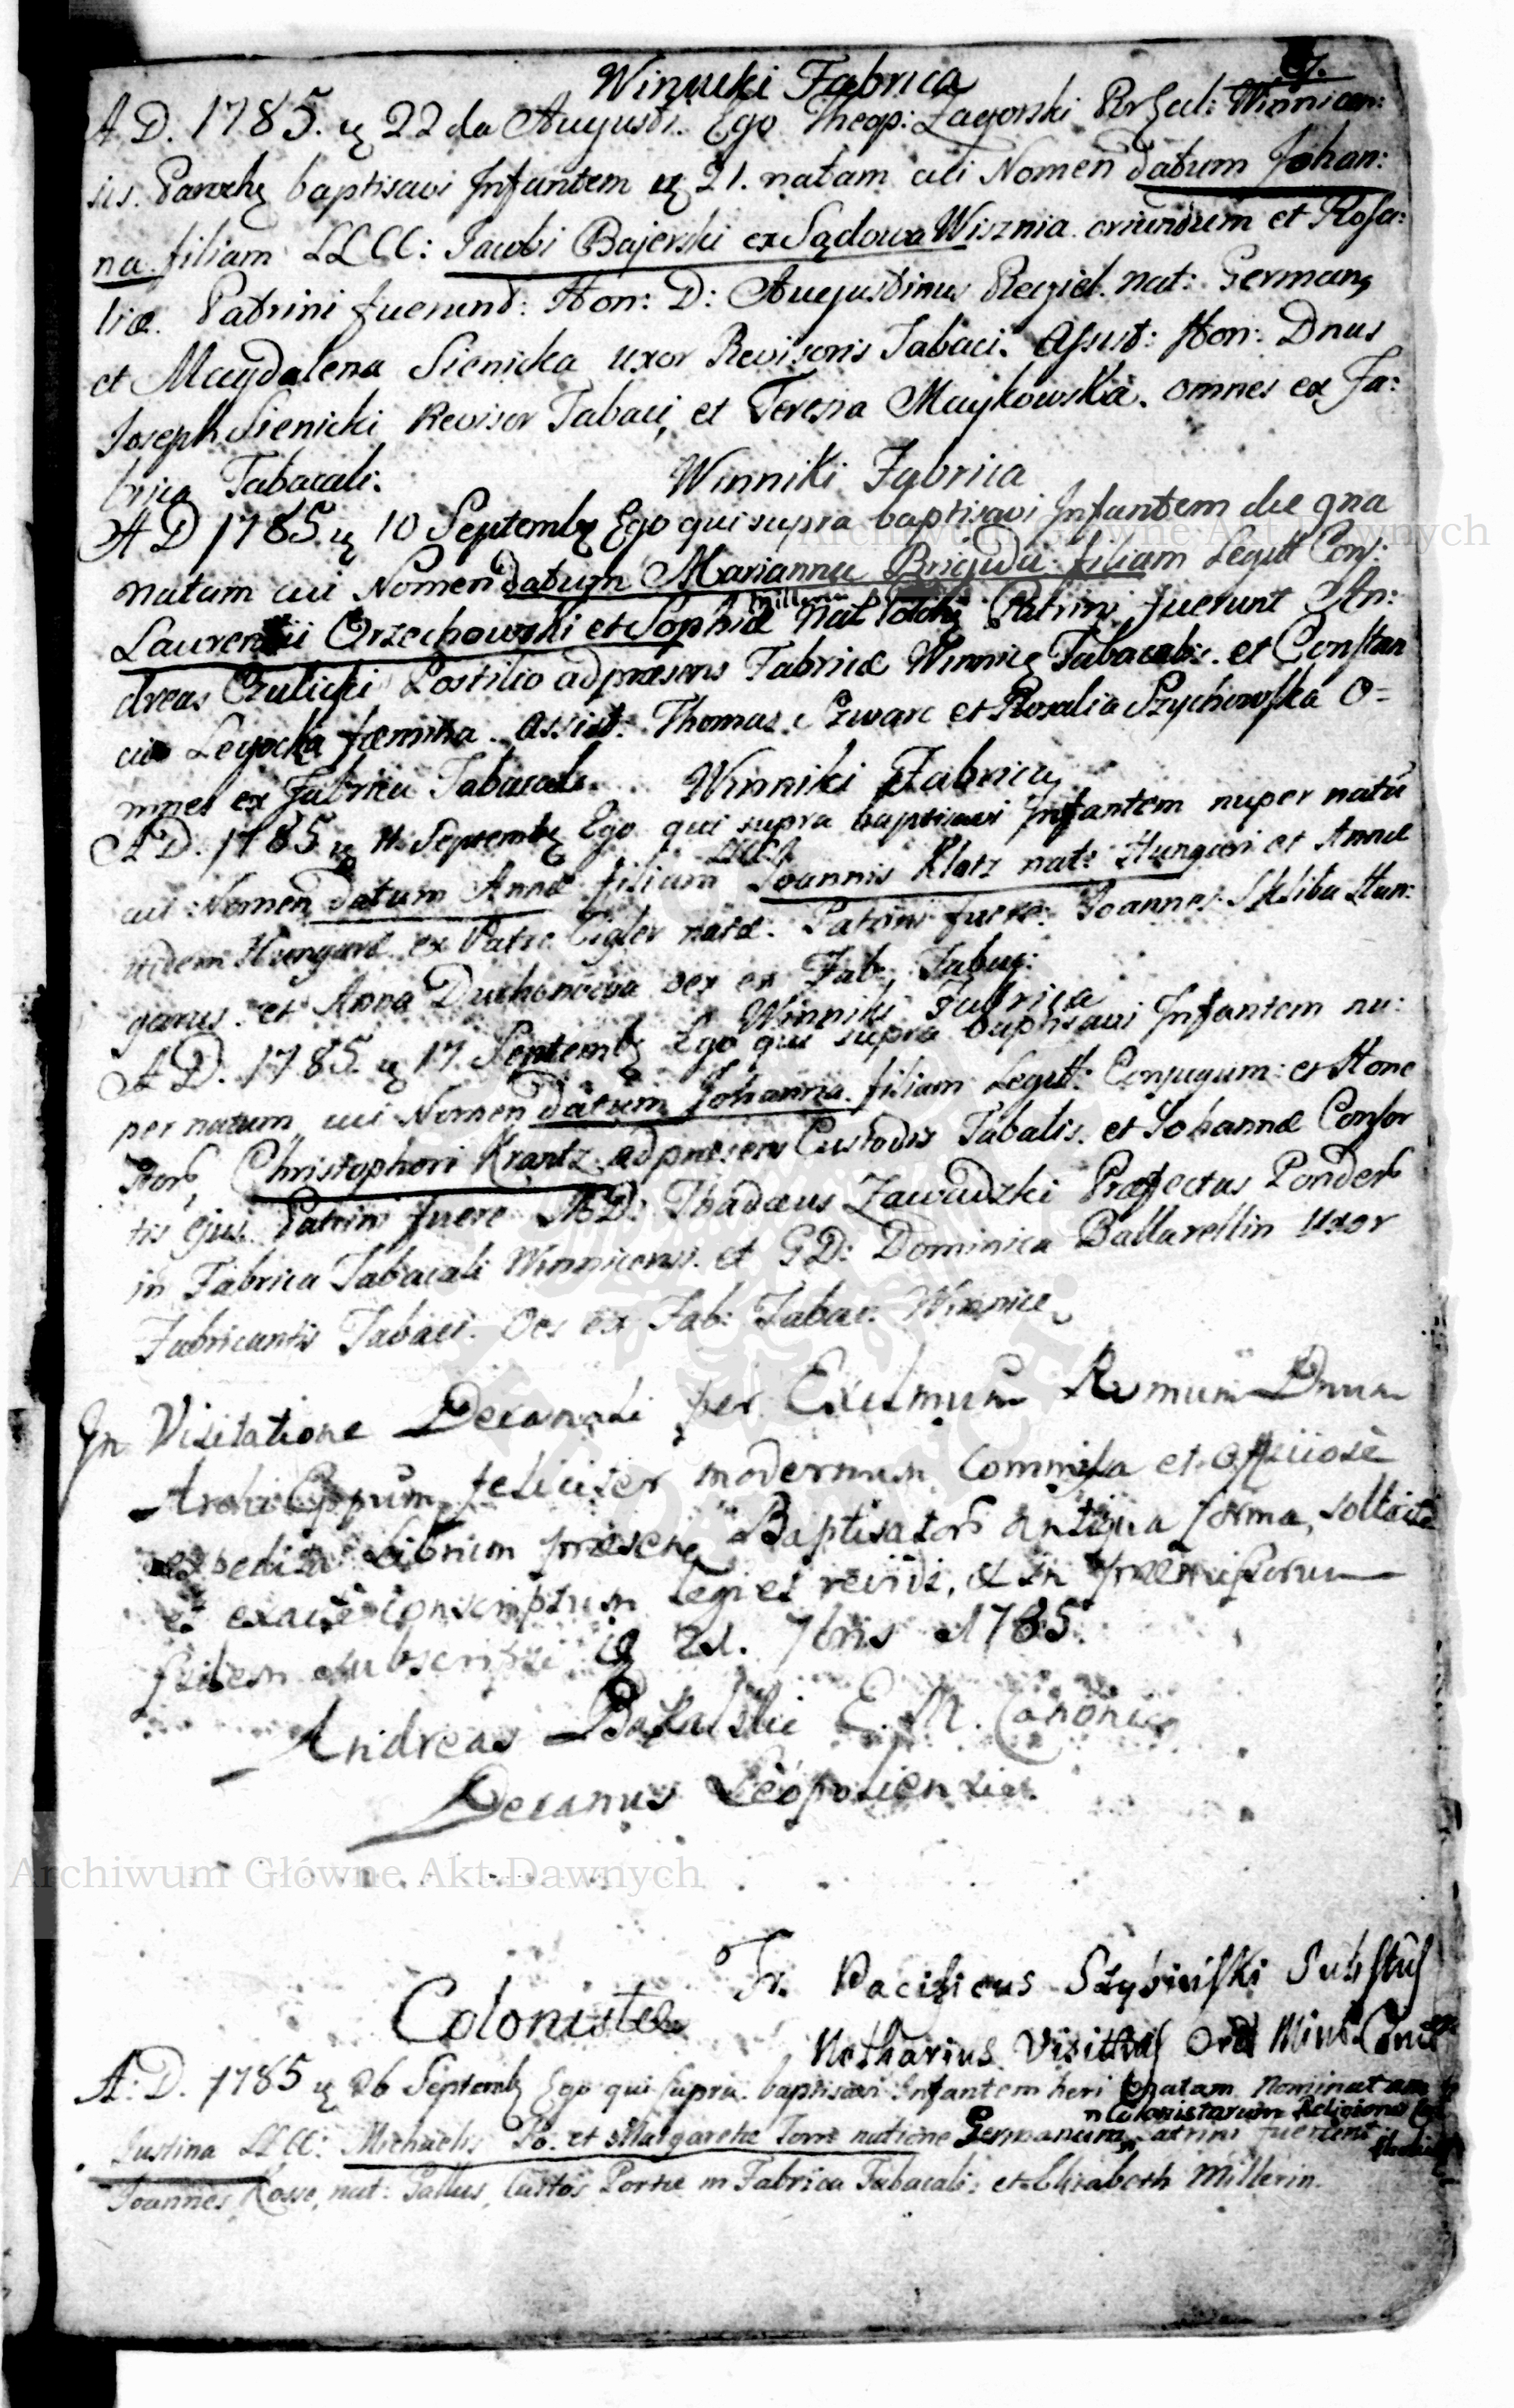 7.
Winniki Fabrica
A D. 1785. 22 da Augusti. Ego Theop: Zagorski Winnicen:
sis. Parochq baptisavi Infantem 21. natam cui Nomen datum Johan:
na filiam LLCC: Jacobi Bajerski ex Sądowa Wisznia oriundum et Rosa:
liæ. Patrini fuerunt: Hon: D: Augustinus nat: Germanq
et Magdalena Sienicka uxor Revisoris Tabaci. Assist: Hon: Dnus
Joseph Sienicki Revisor Tabaci, et Teresia Maykowska. omnes ex Fa:
brica Tabacali:
Winniki Fabrica
A D 1785. 10 Septembq Ego qui supra baptisavi Infantem die 9na
natam cui Nomen datum Marianna Brigida filiam Legitt Conj:
Laurentii Orzechowski et Sophiæ nat Patrini fuerunt An:
dreas Postilio ad præsens Fabricæ Winnicq Tabacalis. et Constan
cia Legocka fæmina. Assist: Thomas Szwarc et Rosalia Szychowska O=
mnes ex Fabrica Tabacali.
Winniki Fabrica
A D. 1785 11 Septembq Ego qui supra baptisavi Infantem nuper natā
cui Nomen datum Anna filiam LLCC Joannis Klotz nat: Hungari et Annæ
itidem Hungaræ ex Patre Cigler natæ. Patrini fuere: Joannes Skliba Hun:
garus. et Anna oes ex Fab: Tabaq:
Winniki Fabrica
A D. 1785 17 Septembq Ego qui supra baptisavi Infantem nu:
per natam, cui Nomen datum Johanna filiam Legitt: Conjugum: et Hone
Christophori Krantz ad præsens Custodis Tabalis. et Johannæ Consor
tis ejus. Patrini fuere MD: Thadæus Zawadzki Præfectus Ponder
in Fabrica Tabacali Winnicensi. et GD: Dominica Ballarellin Uxor
Fabricantis Tabaci. Oes ex Fab: Tabac. Winnicq
In Visitatione Decanali per Exclmum Rvmum Dnum
Archi Eppum feliciter modernum Commissa et officiose
expedita Librum præsens Baptisator antiqua forma, sollicite
et exacte conscriptum legi et revidi, et in præmissorum
fidem subscripsi 21. 7bris 1785.
Andreas E. M. Canonicq
Decanus Leopoliensis.
Fr. Pacificus Substus
Notharius Visittnis Ord Min Conv
Colonistæ
A: D. 1785 26 Septembq Ego qui supra baptisavi Infantem heri natam Nominatam
Colonistarum Religionis
Justina LLCC: Michaelis et Margarethæ natione Germanum Patrini fuerunt
Joannes Kosse, nat: Gallus, Custos Portæ in Fabrica Tabacali: et Elisabeth Millerin.
Archiwum Główne Akt Dawnych
Archiwum Główne Akt Dawnych